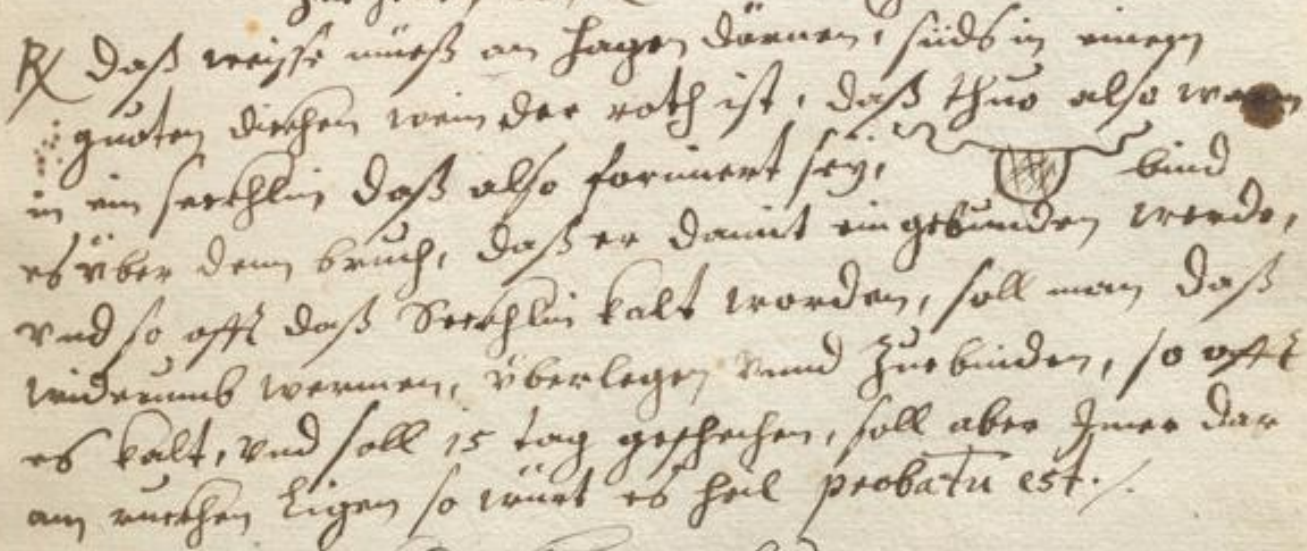 ℞ daß weisse müeß an hagen dörnen, süds in einem
guoten dickhen wein der roth ist, daß thuo also warm
in ein seckhlin daß also formiert sey, bind
es über denn bruch, daß er damit eingebunden werde,
vnd so offt daß Seckhlin kalt worden, soll man daß
widerumb wermen, überlegen vnnd Zuebinden, so offt
es kalt, vnd soll 15 tag geschechen, soll aber Imer dar
am ruckhen ligen so würt es heil probatū est ./.